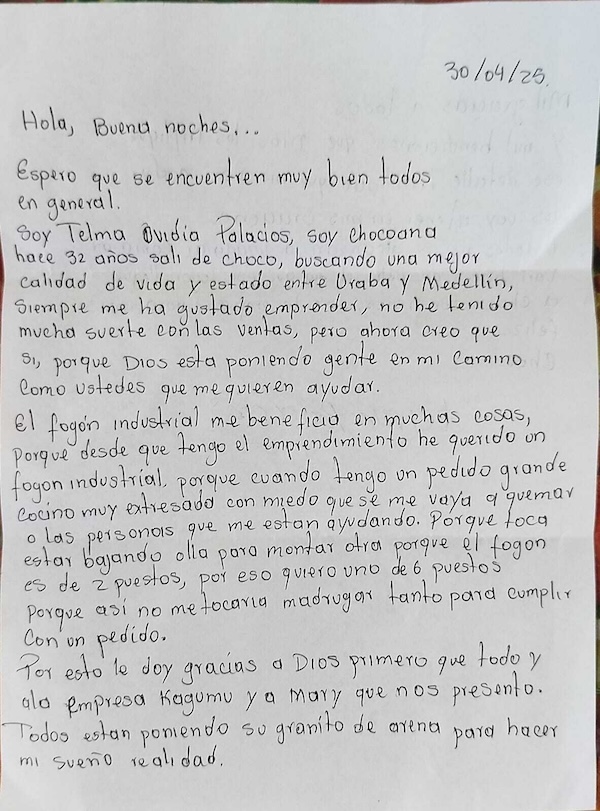 30/04/25.
Hola, Buena noches...
Espero que se encuentren muy bien todos
en general.
Soy Telma Ovidia Palacios, soy chocoana
hace 32 años sali de choco, buscando una mejor
calidad de vida y estado entre Uraba y Medellín,
Siempre me ha gustado emprender, no he tenido
mucha suerte con las ventas, pero ahora creo que
si, porque Dios esta poniendo gente en mi camino
como ustedes que me quieren ayudar.
El fogón industrial me beneficia en muchas cosas,
Porque desde que tengo el emprendimiento he querido un
fogon industrial, porque cuando tengo un pedido grande
Cocino muy extresada con miedo que se me vaya a quemar
o las personas que me estan ayudando. Porque toca
estar bajando olla para montar otra porque el fogon
es de 2 puestos, por eso quiero uno de 6 puestos
Porque así no me tocaria madrugar tanto para cumplir
Con un pedido.
Por esto le doy gracias a Dios primero que todo y
ala Empresa Kagumu y a Mary que nos presento.
Todos estan poniendo su granito de arena para hacer
mi sueño realidad.